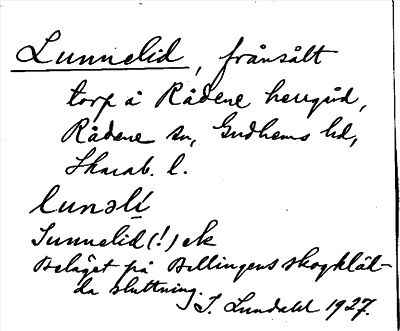 Lunnelid, frånsålt
torp å Rådene herrgård,
Rådene sn, Gudhems hd,
Skarab. l.
lunəlí
Sunnelid (!) ek
Beläget på Billingens skogkläd-
da sluttning.
S. Lundahl 1927.